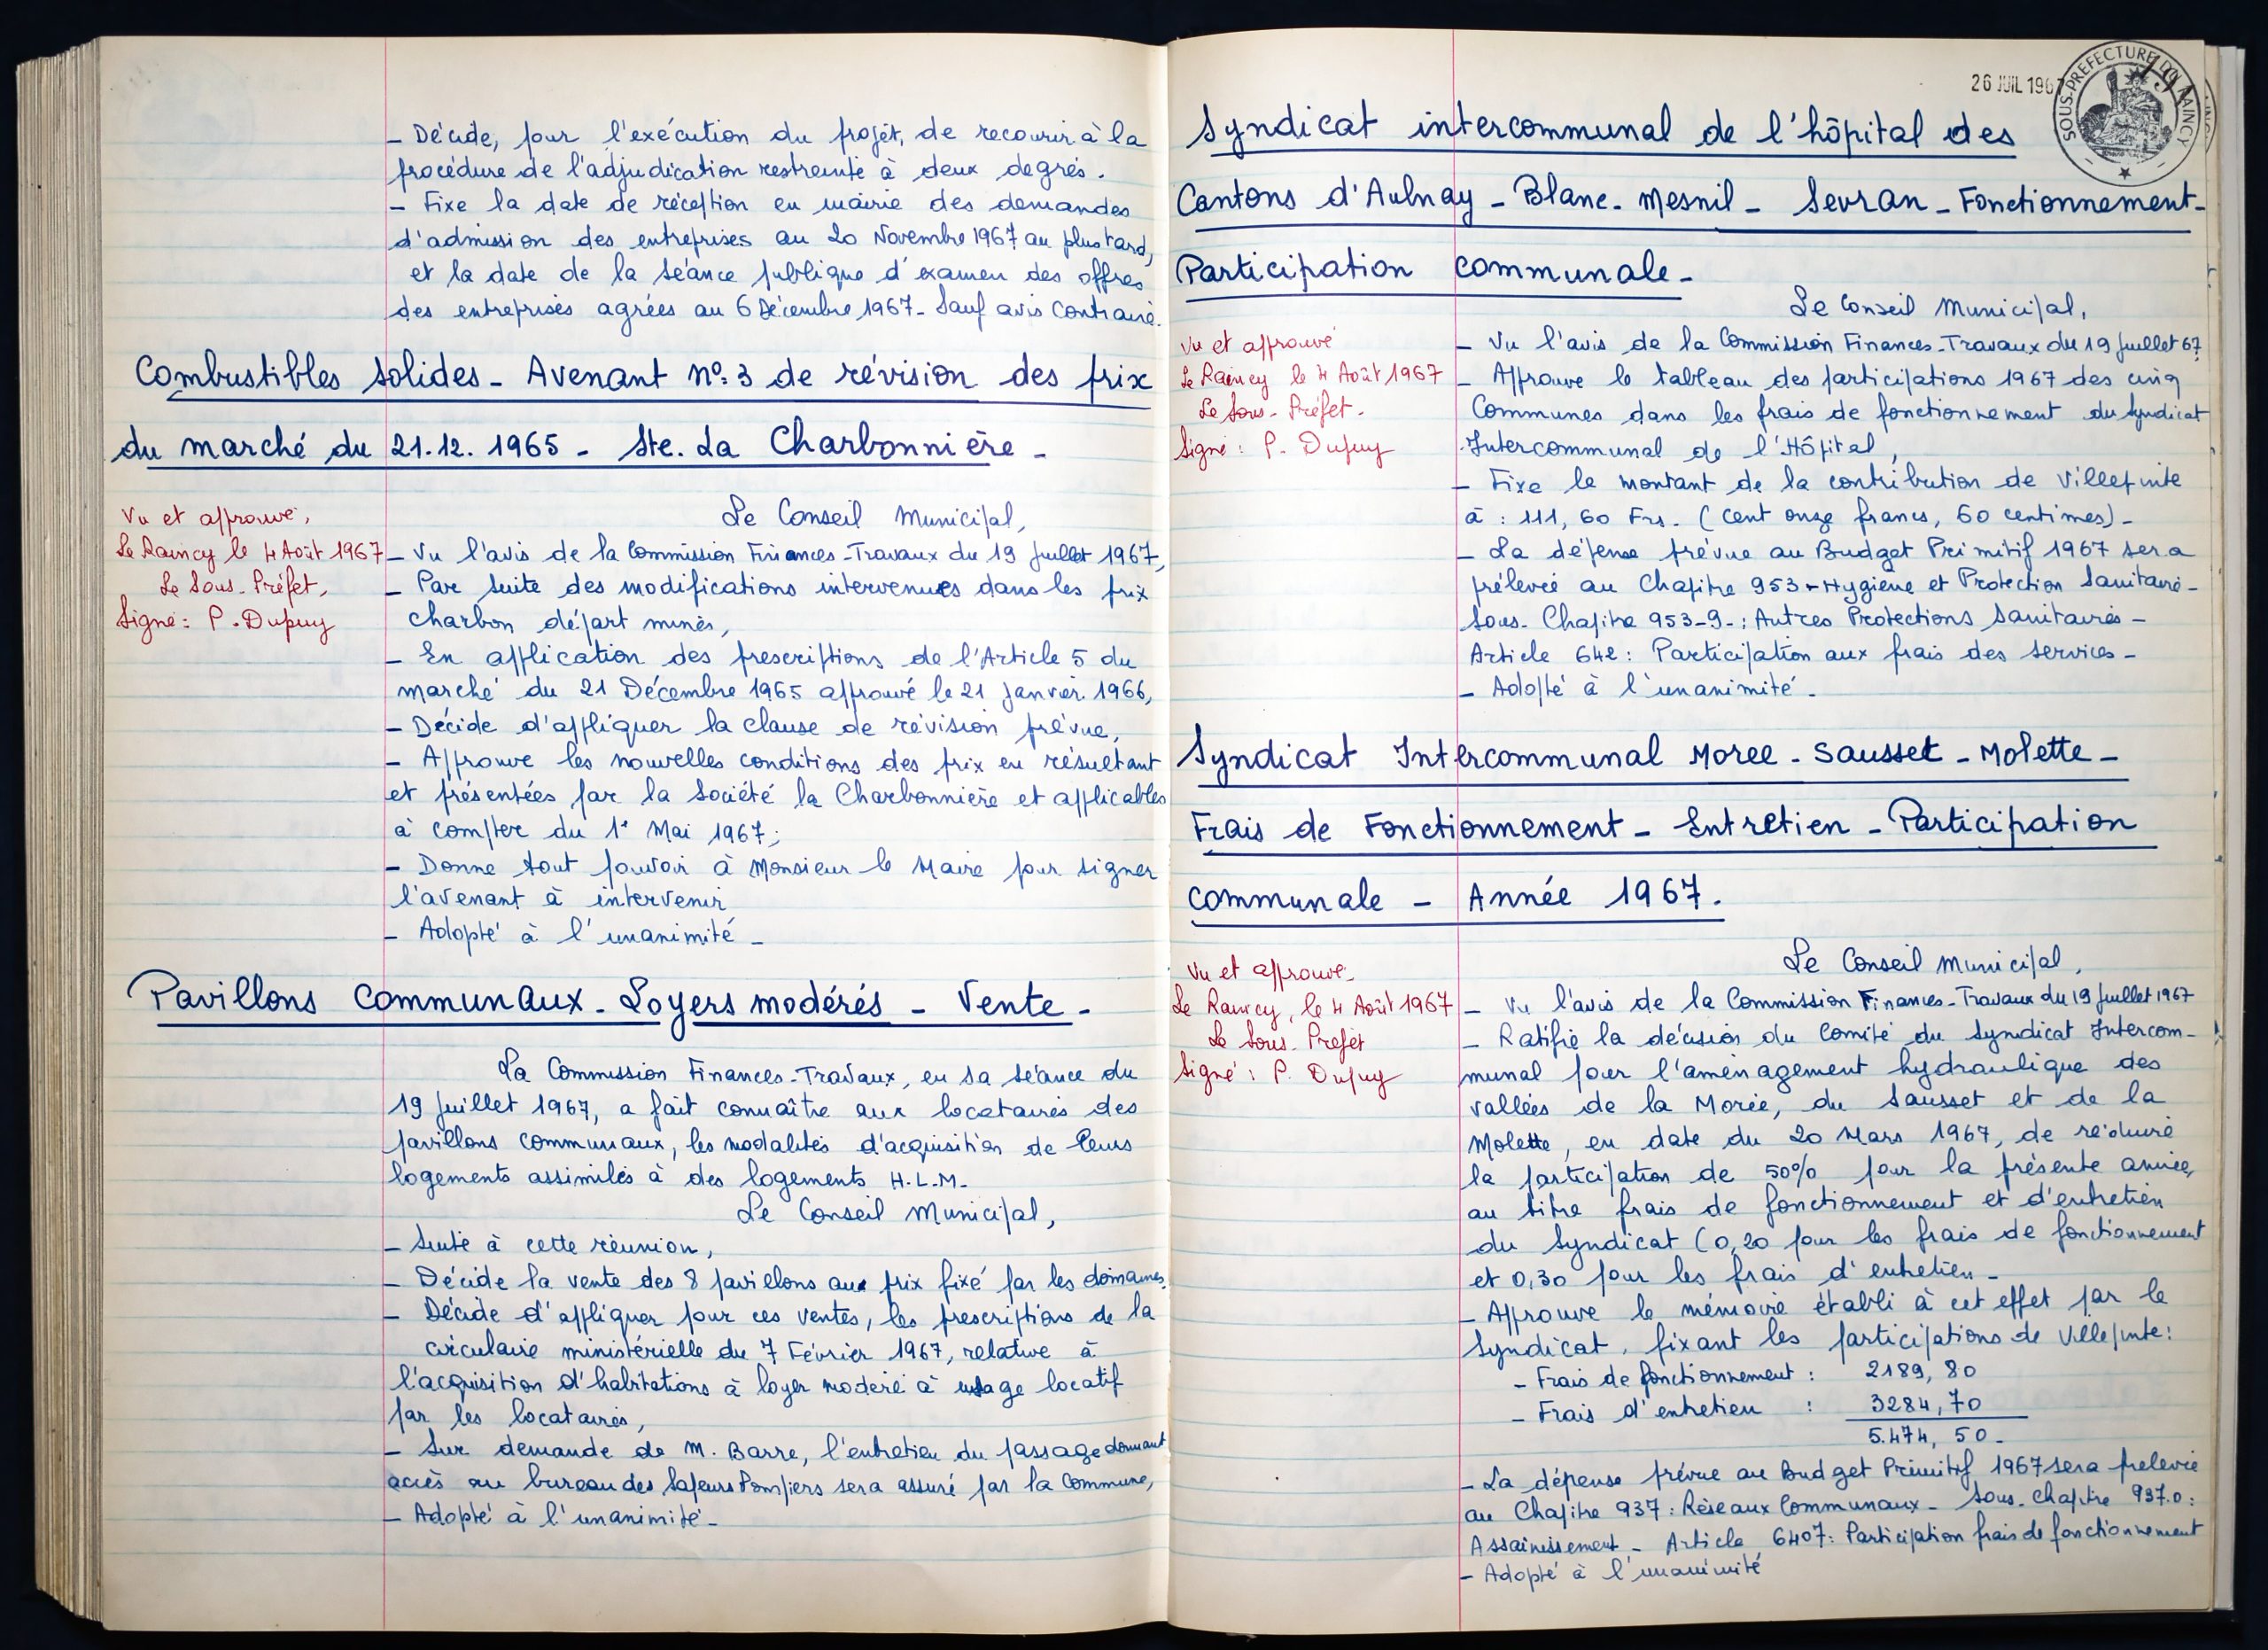 – Décide, pour l'exécution du projet, de recourir à la
procédure de l'adjudication restreinte à deux degrés.
– Fixe la date de réception en mairie des demandes
d'admission des entreprises au 20 Novembre 1967 au plus tard,
et la date de la séance publique d'examen des offres
des entreprises agrées au 6 Décembre 1967 - Sauf avis contraire.
Combustibles solides - Avenant n°: 3 de révision des prix
du marché du 21.12.1965 - Ste. La Charbonnière -
Vu et approuvé,
Le Raincy le 4 Août 1967
Le Sous-Préfet,
Signé : P. Dupuy
Le Conseil Municipal,
– Vu l'avis de la Commission Finances-Travaux du 19 Juillet 1967,
– Par suite des modifications intervenues dans les prix
charbon départ mines,
– En application des prescriptions de l'Article 5 du
marché du 21 Décembre 1965 approuvé le 21 Janvier 1966,
– Décide d'appliquer la clause de révision prévue,
– Approuve les nouvelles conditions des prix en résultant
et présentées par la Société la Charbonnière et applicables
à compter du 1er Mai 1967;
– Donne tout pouvoir à Monsieur le Maire pour signer
l'avenant à intervenir
– Adopté à l'unanimité -
Pavillons Communaux - Loyers modérés - Vente -
La Commission Finances-Travaux, en sa séance du
19 Juillet 1967, a fait connaître aux locataires des
pavillons communaux, les modalités d'acquisition de leurs
logements assimilés à des logements H.L.M.
Le Conseil Municipal,
– Suite à cette réunion,
– Décide la vente des 8 pavillons aux prix fixé par les domaines.
– Décide d'appliquer pour ces ventes, les prescriptions de la
circulaire ministérielle du 7 Février 1967, relative à
l'acquisition d'habitations à loyer modéré à usage locatif
par les locataires,
– Sur demande de M. Barre, l'entretien du passage donnant
accès au bureau des Sapeurs Pompiers sera assuré par la Commune,
– Adopté à l'unanimité -
26 JUIL 1967
SOUS-PREFECTURE DU RAINCY
19
Syndicat intercommunal de l'hôpital des
Cantons d'Aulnay - Blanc-Mesnil - Sevran - Fonctionnement -
Participation communale -
Vu et approuvé
Le Raincy le 4 Août 1967
Le Sous-Préfet.
Signé : P. Dupuy
Le Conseil Municipal,
– Vu l'avis de la Commission Finances-Travaux du 19 Juillet 67,
– Approuve le tableau des participations 1967 des cinq
Communes dans les frais de fonctionnement du Syndicat
Intercommunal de l'Hôpital,
– Fixe le montant de la contribution de Villepinte
à : 111,60 Frs. (cent onze francs, 60 centimes) -
– La dépense prévue au Budget Primitif 1967 sera
prélevée au Chapitre 953 - Hygiène et Protection Sanitaire -
Sous-Chapitre 953-9- : Autres Protections Sanitaires -
Article 642 : Participation aux frais des services -
– Adopté à l'unanimité -
Syndicat Intercommunal Moree - Sausset - Molette -
Frais de Fonctionnement - Entretien - Participation
communale - Année 1967.
Vu et approuvé
Le Raincy, le 4 Août 1967
Le Sous-Préfet
Signé : P. Dupuy
Le Conseil Municipal,
– Vu l'avis de la Commission Finances-Travaux du 19 Juillet 1967
– Ratifie la décision du Comité du Syndicat Intercom-
munal pour l'aménagement hydraulique des
vallées de la Morée, du Sausset et de la
Molette, en date du 20 Mars 1967, de réduire
la participation de 50% pour la présente année,
au titre frais de fonctionnement et d'entretien
du Syndicat (0,20 pour les frais de fonctionnement
et 0,30 pour les frais d'entretien -
– Approuve le mémoire établi à cet effet par le
Syndicat, fixant les participations de Villepinte :
– Frais de fonctionnement : 2189,80
– Frais d'entretien : 3284,70
5.474,50 -
– La dépense prévue au Budget Primitif 1967 sera prelevée
au Chapitre 937 : Réseaux Communaux - Sous-Chapitre 937.0 :
Assainissement - Article 6407 : Participation frais de fonctionnement
– Adopté à l'unanimité